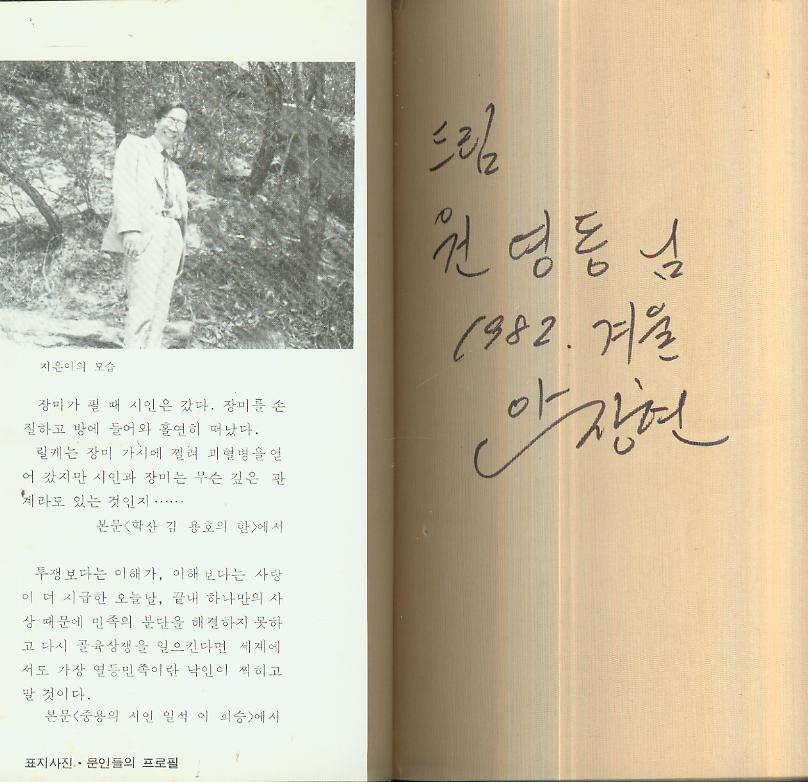 지은이의 모습
장미가 필 때 시인은 갔다. 장미를 손
질하고 방에 들어와 홀연히 떠났다.
릴케는 장미 가시에 찔려 괴혈병을 얻
어 갔지만 시인과 장미는 무슨 깊은 관
계라도 있는 것인지……
본문〈학산 김 용호의 한〉에서
투쟁보다는 이해가, 이해보다는 사랑
이 더 시급한 오늘날, 끝내 하나만의 사
상 때문에 민족의 분단을 해결하지 못하
고 다시 골육상쟁을 일으킨다면 세계에
서도 가장 열등민족이란 낙인이 찍히고
말 것이다.
본문〈중용의 시인 일석 이 희승〉에서
표지사진·문인들의 프로필
드림
원 영동 님
1982. 겨울
안장현